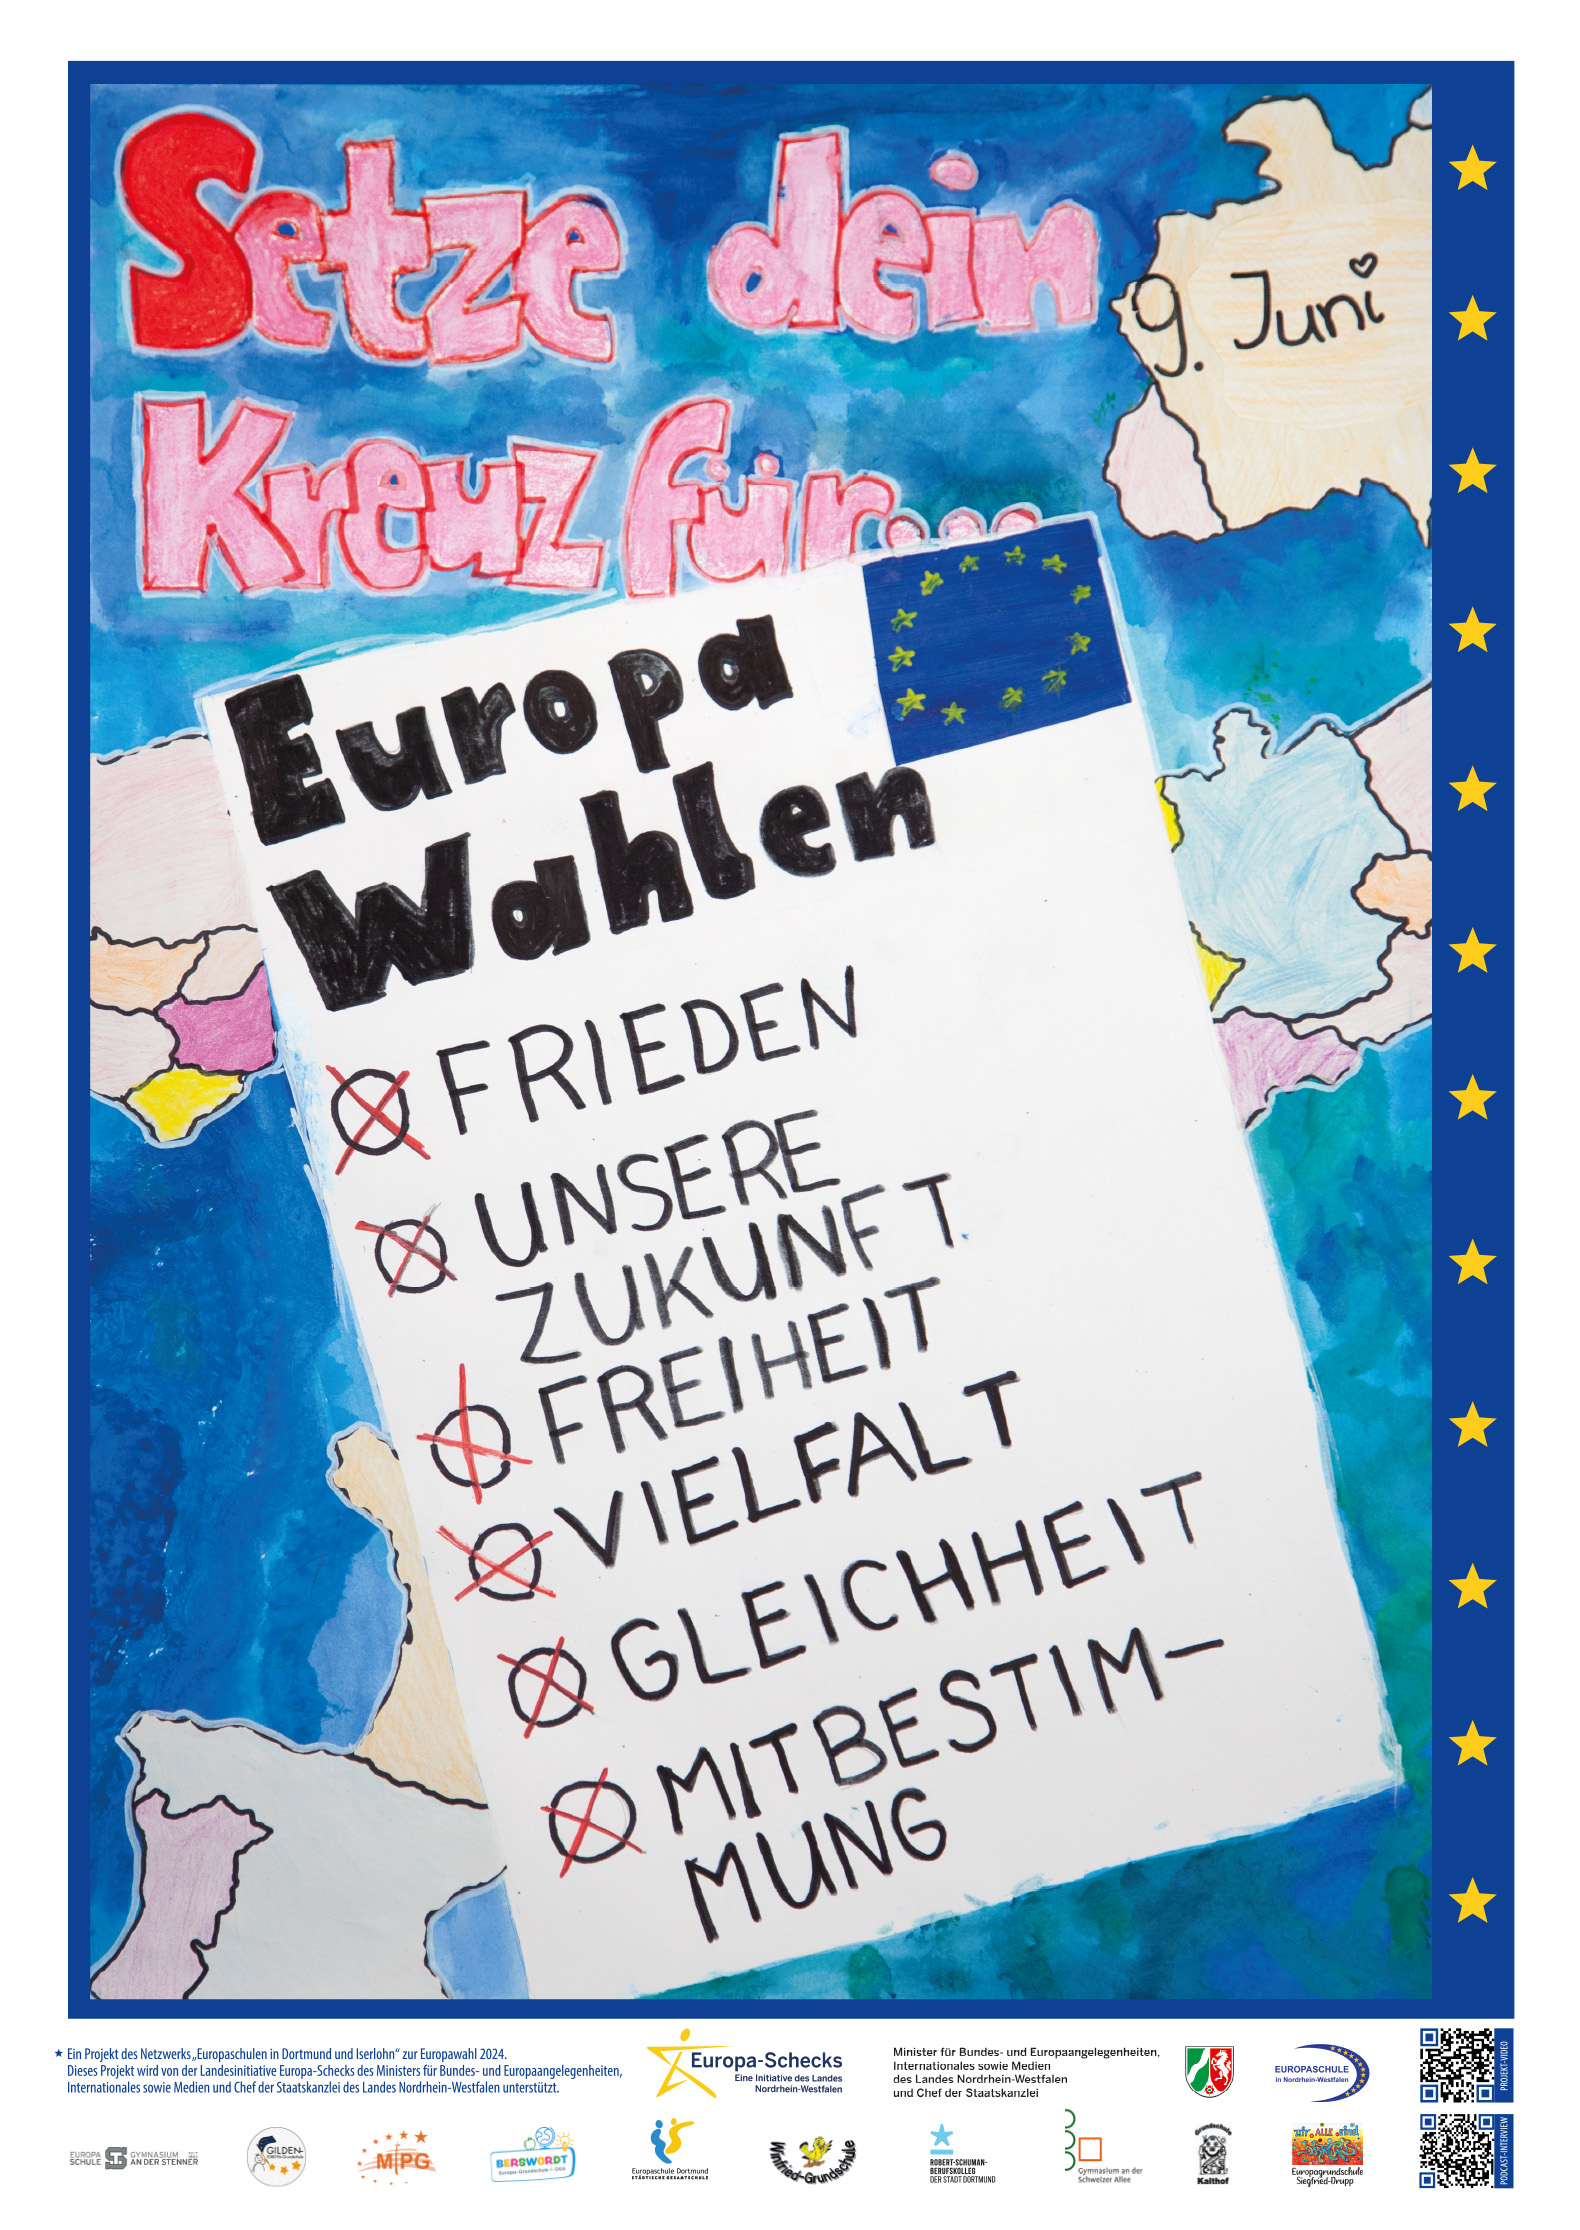 Setze dein
Kreuz für...
9. Juni
Europa
Wahlen
FRIEDEN
UNSERE
ZUKUNFT
FREIHEIT
VIELFALT
GLEICHHEIT
MITBESTIM-
MUNG
Ein Projekt des Netzwerks „Europaschulen in Dortmund und Iserlohn“ zur Europawahl 2024.
Dieses Projekt wird von der Landesinitiative Europa-Schecks des Ministers für Bundes- und Europaangelegenheiten,
Internationales sowie Medien und Chef der Staatskanzlei des Landes Nordrhein-Westfalen unterstützt.
Europa-Schecks
Eine Initiative des Landes
Nordrhein-Westfalen
Minister für Bundes- und Europaangelegenheiten,
Internationales sowie Medien
des Landes Nordrhein-Westfalen
und Chef der Staatskanzlei
EUROPASCHULE
in Nordrhein-Westfalen
PROJEKT-VIDEO
EUROPA
SCHULE
GYMNASIUM
AN DER STENNER
GILDEN-
EUROPA-Grundschule
MPG
BERSWORDT
Europa-Grundschule /-OGS
Europaschule Dortmund
STÄDTISCHE GESAMTSCHULE
Winfried-Grundschule
ROBERT-SCHUMAN-
BERUFSKOLLEG
DER STADT DORTMUND
Gymnasium an der
Schweizer Allee
Grundschule
Kalthof
WIR ALLE sind
Europagrundschule
Siegfried-Drupp
PODCAST-INTERVIEW